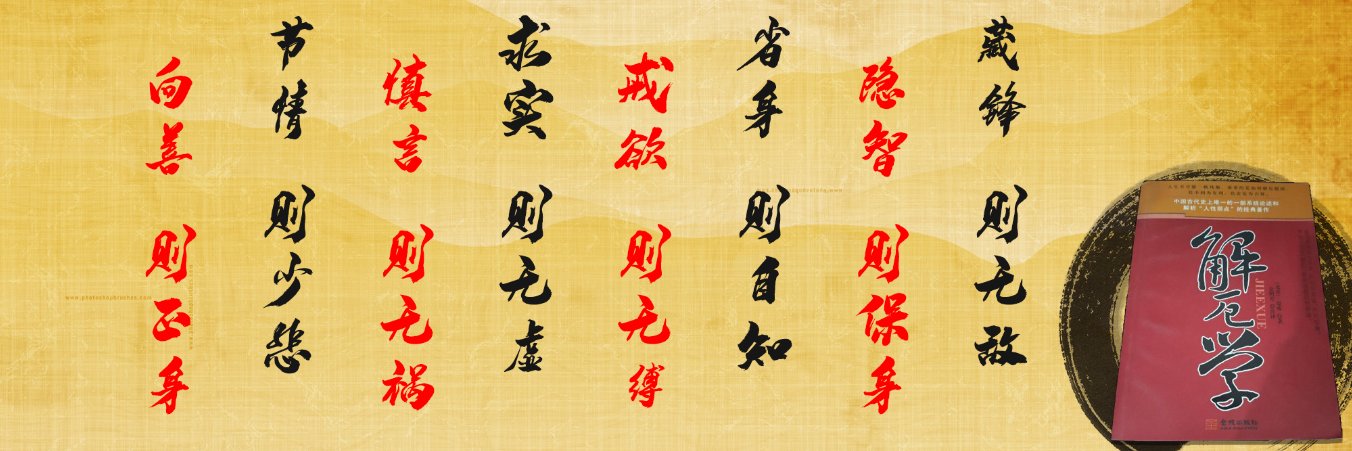 藏锋 则无敌
隐智 则保身
省身 则自知
戒欲 则无缚
求实 则无虚
慎言 则无祸
节情 则少怨
向善 则正身
中国古代史上唯一的一部系统论述和
解析“人性弱点”的经典著作
解厄学
JIEEXUE
www.photoshopbrushes.com